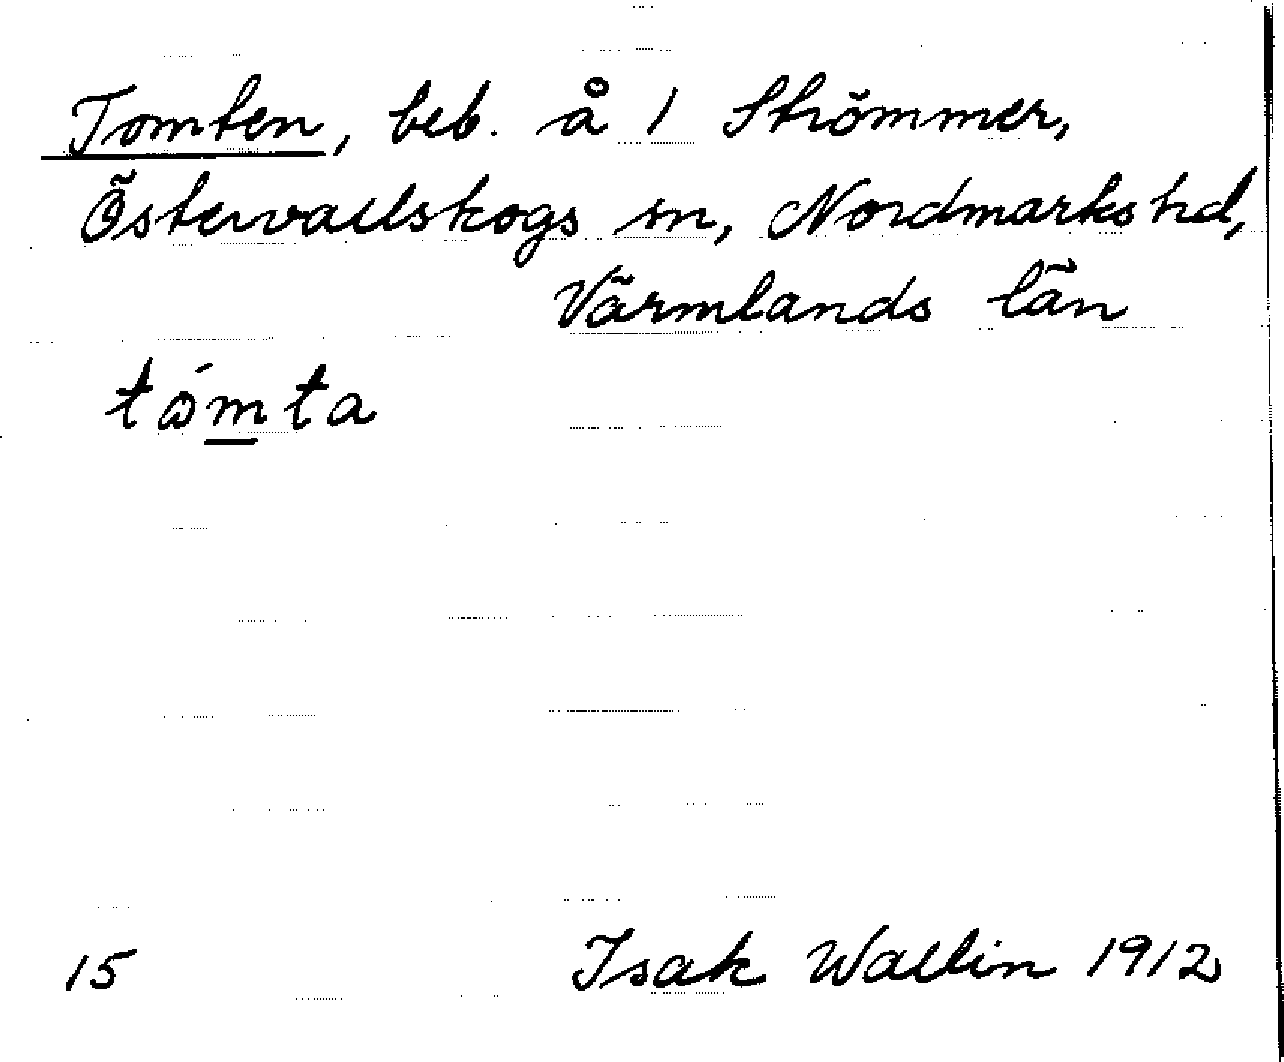 Tomten, beb. å 1 Strömmer,
Östervallskogs sn, Nordmarks hd,
Värmlands län
tómta
15 Isak Wallin 1912